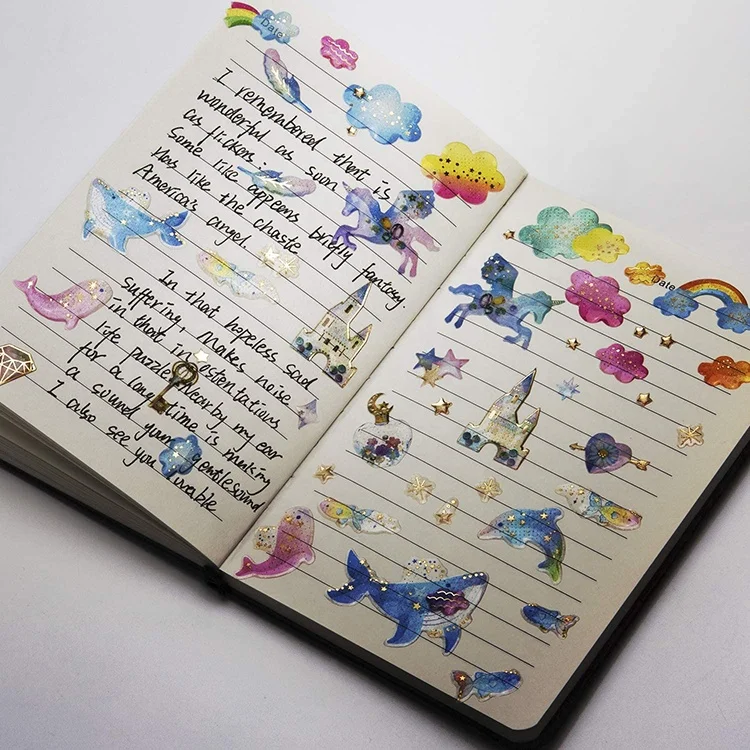 Date
I remembered that is
wonderful as soon
as flickers.
Some like appeens briefly fantasy.
Has like the chaste
America's angel.
In that hopeless sad
suffering, makes noise
in that in ostentatious
life puzzle near by my ear
for a long time is making
a sound your gentle sound
I also see you lovable
Date